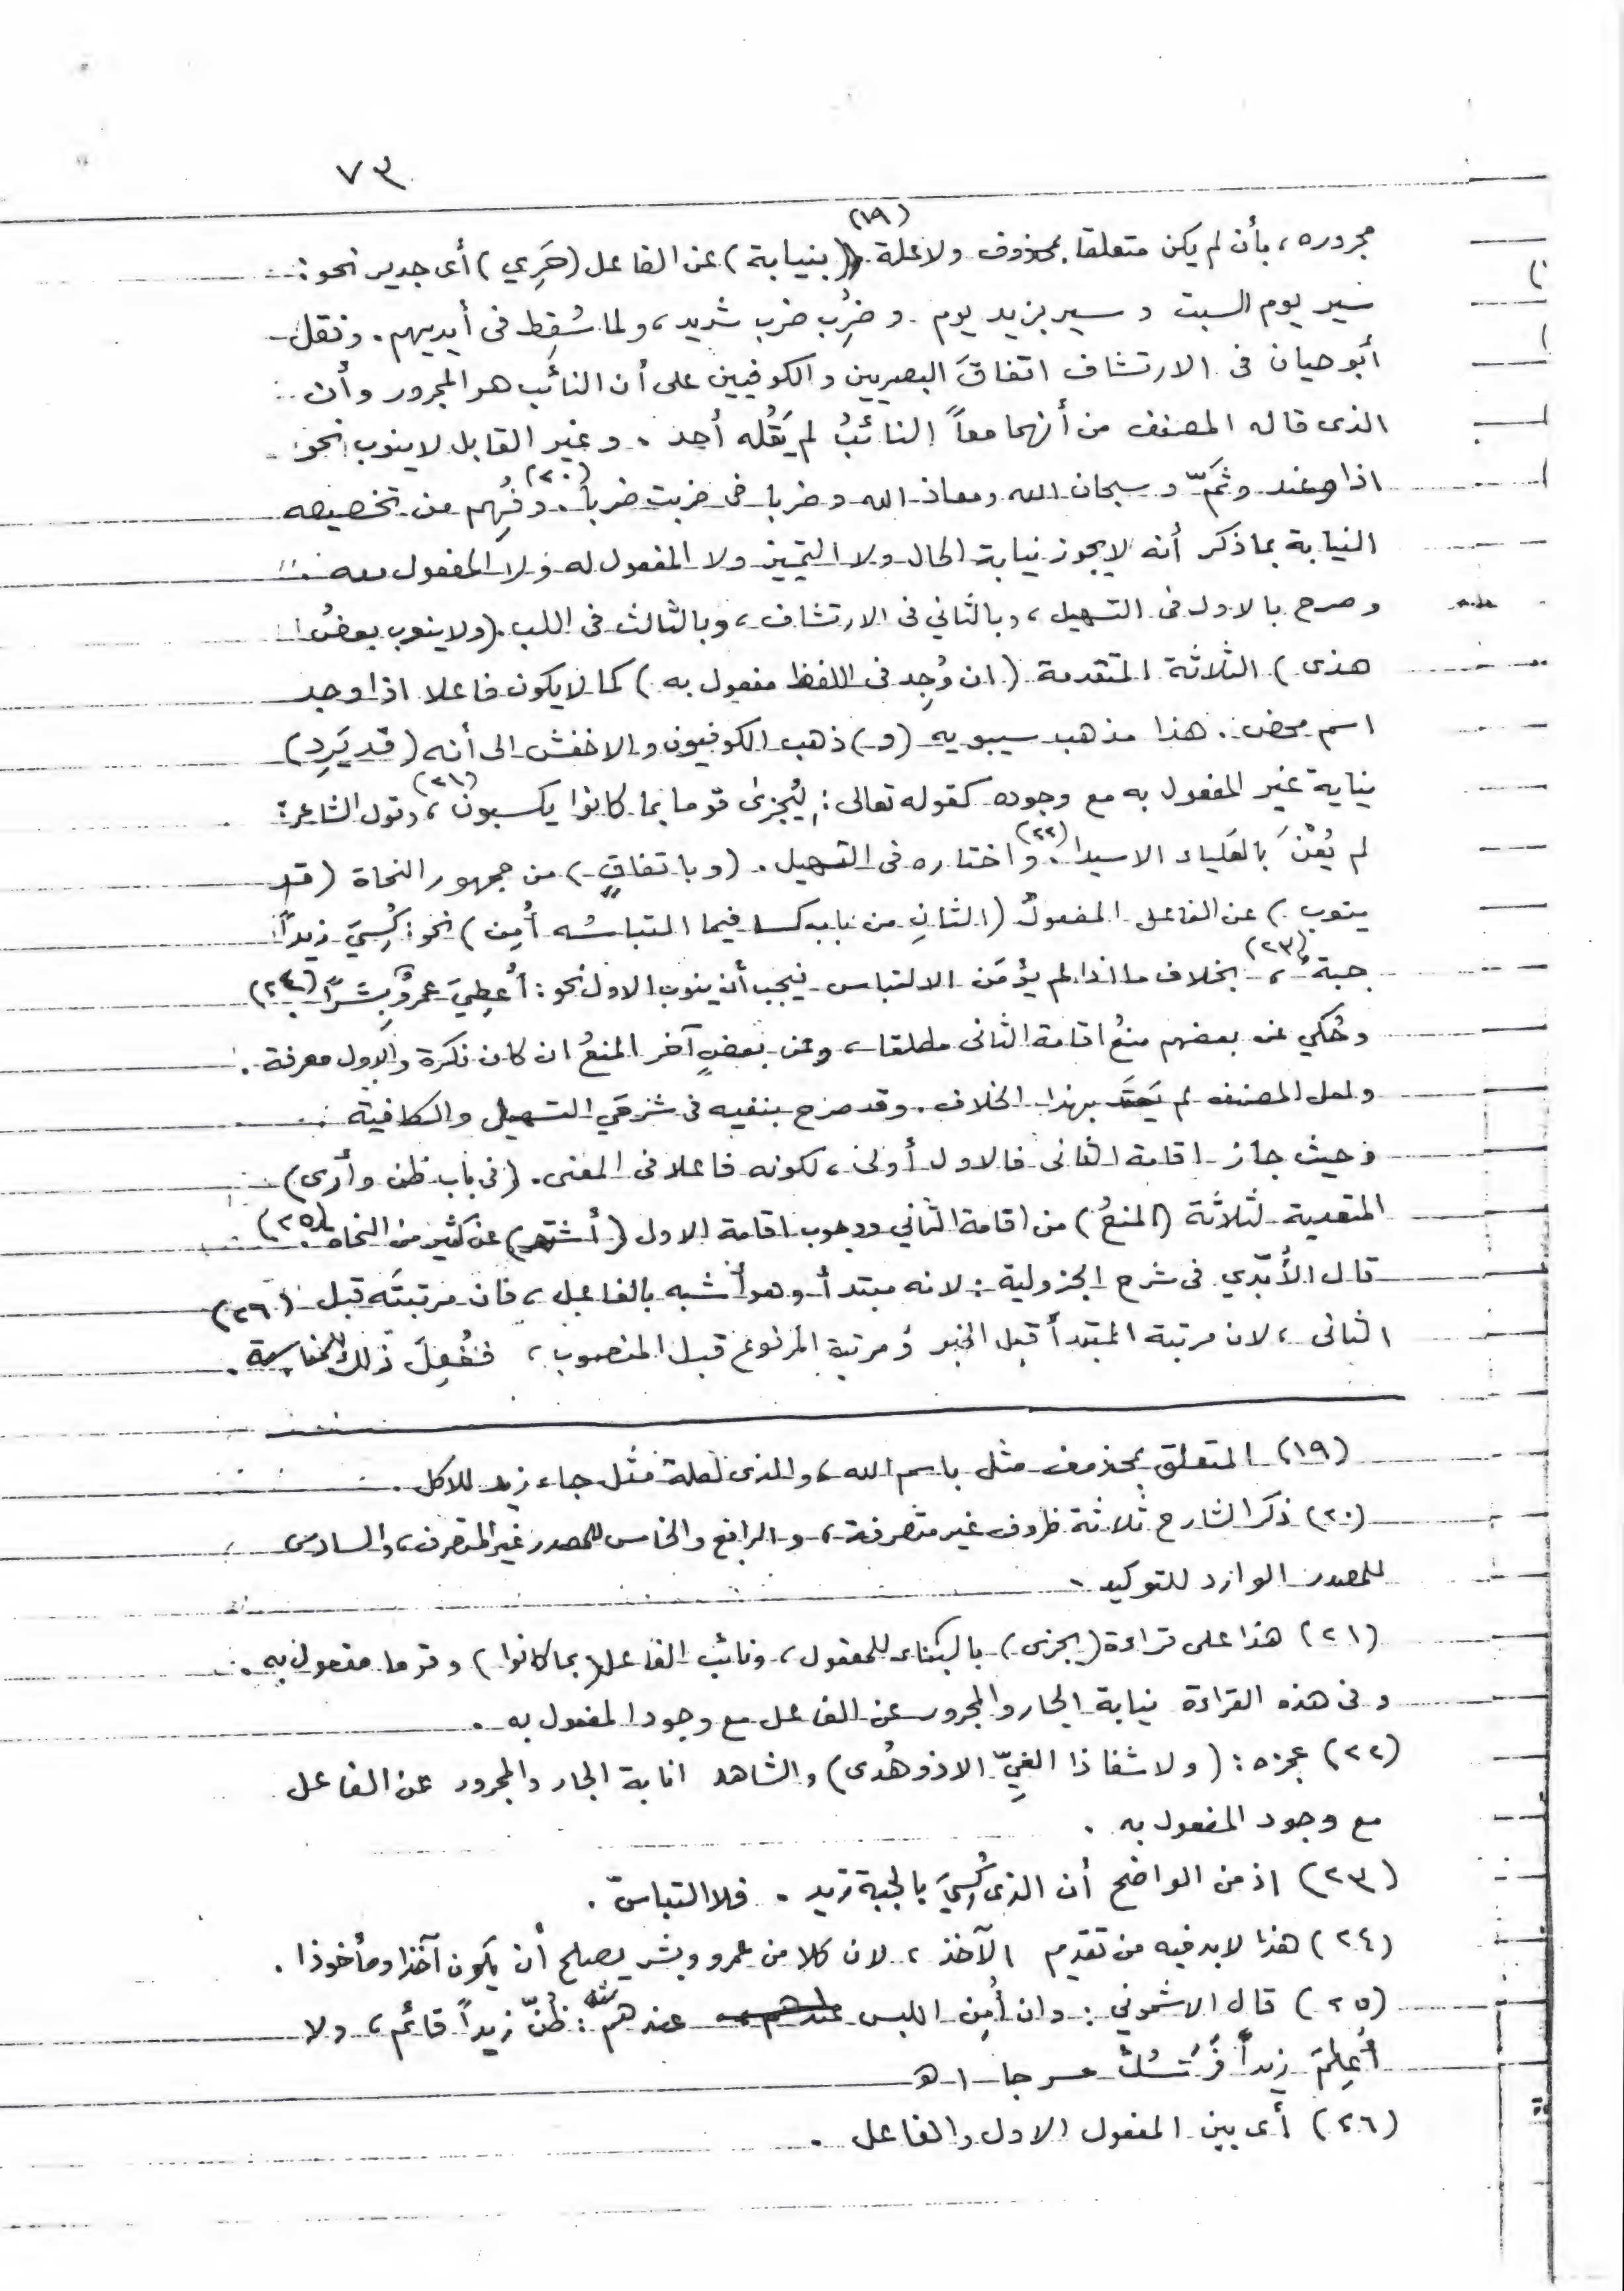 ٧٣
(١٩)
مجروره، بأن لم يكن متعلقا بمحذوف ولا علة (بنيابة) عن الفاعل (حَرِي) أى جدير نحو:
سير يوم السبت و سير بزيد يوم. و ضُرِب ضرب شديد، ولما سُقِط فى أيديهم. ونقل
أبو حيان فى الارتشاف اتفاقَ البصريين والكوفيين على أن النائب هو المجرور وأن
الذى قاله المصنف من أنهما معاً النائبُ لم يَقُله أحد. وغير القابل لا ينوب نحو:
اذا وعند وثَمَّ و سبحان الله ومعاذ الله وضربا فى ضربت ضرباً (٢٠). وفُهِم من تخصيصه
النيابة بما ذكر أنه لا يجوز نيابة الحال ولا التمييز ولا المفعول له ولا المفعول معه.
وصرح بالاول فى التسهيل، وبالثاني فى الارتشاف، وبالثالث فى اللب. (ولا ينوب بعضُ
هذى) الثلاثة المتقدمة (ان وُجِد فى اللفظ مفعول به) كما لا يكون فاعلا اذا وجد
اسم محض. هذا مذهب سيبويه (و) ذهب الكوفيون والاخفش الى أنه (قد يَرِد)
نيابة غير المفعول به مع وجوده كقوله تعالى: لِيُجزىٰ قوما بما كانوا يكسبون (٢١)، وقول الشاعر:
لم يُعْنَ بالعَلياء الا سيدا (٢٢). واختاره فى التسهيل. (وباتفاقٍ) من جمهور النحاة (قد
ينوب) عن الفاعل المفعولُ (الثانِ من باب كسا فيما التباسُه أُمِن) نحو: كُسِيَ زيداً
جبةٌ (٢٣)، بخلاف ما اذا لم يؤمَن الالتباس فيجب أن ينوب الاول نحو: أُعطِيَ عمروٌ بِشراً (٢٤)
وحُكي عن بعضهم منعُ اقامة الثانى مطلقا، وعن بعضٍ آخر المنعُ ان كان نكرة والاول معرفة.
ولعل المصنف لم يَعتَد بهذا الخلاف. وقد صرح بنفيه فى شرحَي التسهيل والكافية
وحيث جاز اقامة الثانى فالاول أولى، لكونه فاعلا فى المعنى. (فى باب ظن وأرى)
المتعدية لثلاثة (المنعُ) من اقامة الثاني ووجوب اقامة الاول (أشتهر) عن كثير من النحاه (٢٥).
قال الأُبّدي فى شرح الجزولية: لانه مبتدأ وهو أشبه بالفاعل، فان مرتبتَه قبل
الثانى، لان مرتبة المبتدأ قبل الخبر ومرتبة المرفوع قبل المنصوب، ففُعِلَ ذلك للمناسبة. (٢٦)
(١٩) المتعلق بمحذوف مثل باسم الله، والذى لعلة مثل جاء زيد للاكل.
(٢٠) ذكر الشارح ثلاثة ظروف غير متصرفة، والرابع والخامس للمصدر غير المتصرف، والسادس
للمصدر الوارد للتوكيد.
(٢١) هذا على قراءة (يجزى) بالبناء للمفعول، ونائب الفاعل (بما كانوا) وقوما مفعول به.
وفى هذه القراءة نيابة الجار والمجرور عن الفاعل مع وجود المفعول به.
(٢٢) عجزه: (ولا شفا ذا الغيِّ الا ذو هُدى) والشاهد انابة الجار والمجرور عن الفاعل
مع وجود المفعول به.
(٢٣) اذ من الواضح أن الذى كُسِيَ بالجبة زيد. فلا التباس.
(٢٤) هذا لابد فيه من تقديم الآخذ، لان كلا من عمرو وبشر يصلح أن يكون آخذا ومأخوذا.
(٢٥) قال الاشموني: وان أُمِن اللبس عندهم: ظُنَّ زيداً قائم، ولا
أُعلِمَ زيداً فرسُك مسرجا اهـ
(٢٦) أى بين المفعول الاول والفاعل.